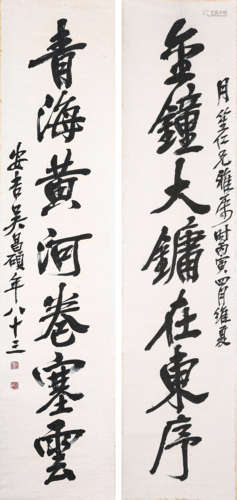 金鐘大鏞在東序
月笙仁兄雅屬時丙寅四月維夏
青海黃河卷塞雲
安吉吳昌碩年八十三